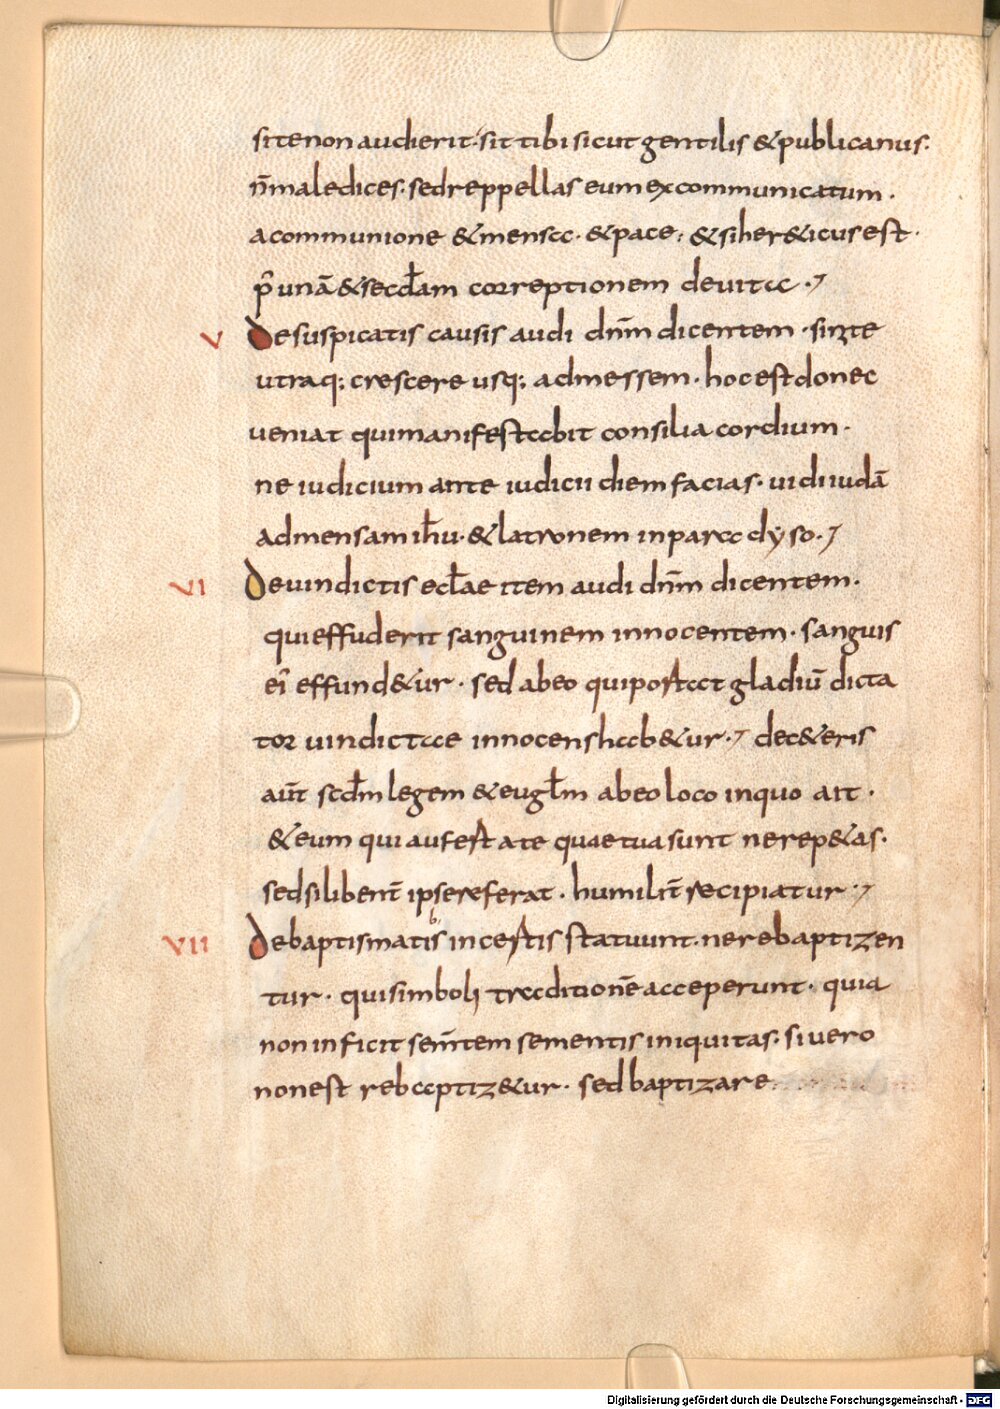 si te non audierit. sit tibi sicut gentilis &publicanus.
n̄ maledices. sed reppellas eum excommunicatum.
a communione &mensa. &pace. &si her&icus est.
p̄ unā &secd̄am correptionem deuita.
V De suspicatis causis audi dn̄m dicentem. sinite
utraq; crescere usq; ad messem. hoc est donec
ueniat qui manifestabit consilia cordium.
ne iudicium ante iudicii diem facias. uidi iudā
ad mensam ih̄u. &latronem in paradyso.
VI De uindictis ecl̄ae item audi dn̄m dicentem.
qui effuderit sanguinem innocentem. sanguis
ei effund&ur. sed ab eo qui portat gladiū dicta
tor uindictae innocens hab&ur. de c&eris
aūt scd̄m legem &eugl̄m ab eo loco in quo ait.
&eum qui aufert a te quae tua sunt ne rep&as.
sed si liben̄t ipse referat. humilit̄ recipiatur.
VII De baptismatis incertis statuunt. ne rebaptizen
tur. qui simboli traditionē acceperunt. quia
non inficit sem̄tem sementis iniquitas. si uero
non est rebaptiz&ur. sed baptizare
Digitalisierung gefördert durch die Deutsche Forschungsgemeinschaft - DFG